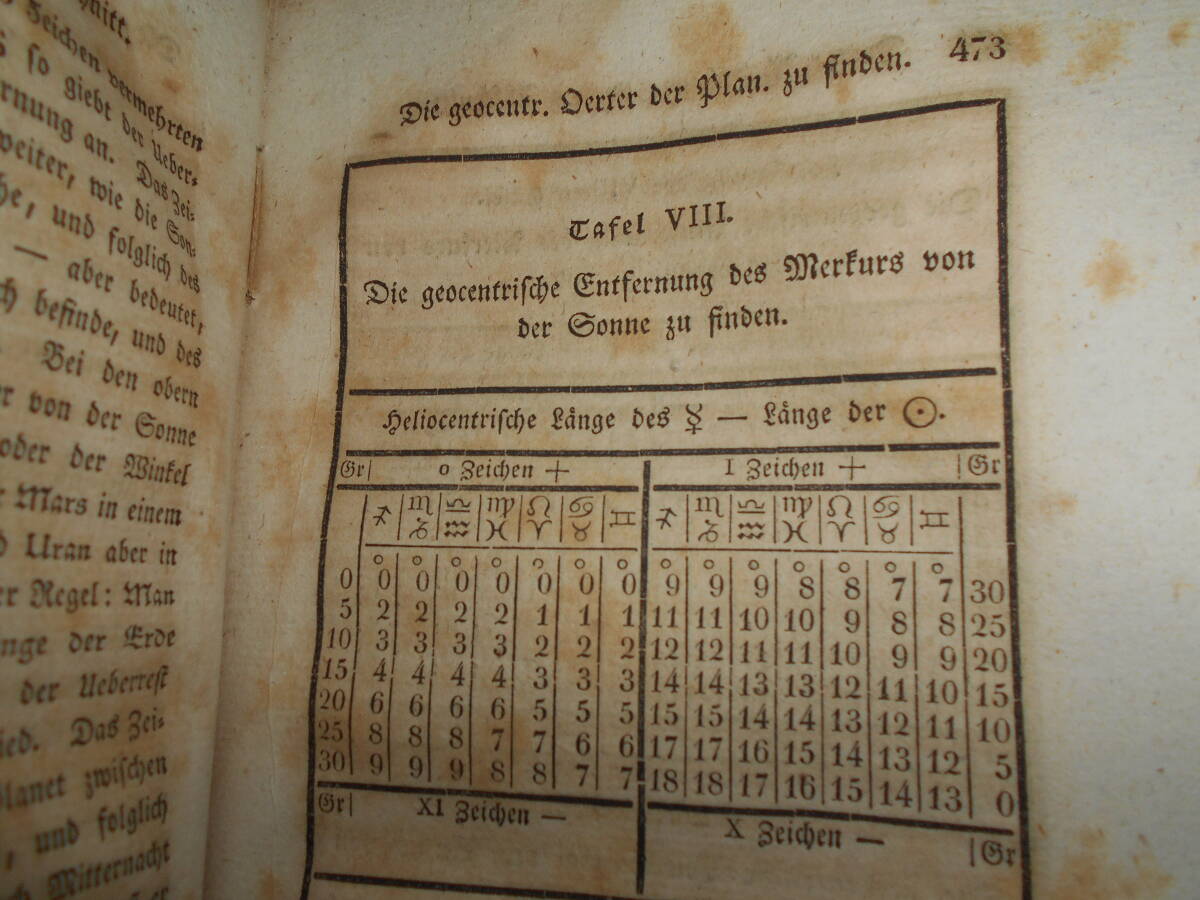 nitt.
Zeichen vermehrten
so giebt der Ueber-
rnung an. Das Zei-
weiter, wie die Son-
he, und folglich des
— aber bedeutet,
ch befinde, und des
Bei den obern
er von der Sonne
oder der Winkel
r Mars in einem
d Uran aber in
er Regel: Man
nge der Erde
der Ueberrest
ied. Das Zei-
lanet zwischen
, und folglich
ch Mitternacht
Die geocentr. Oerter der Plan. zu finden. 473
Tafel VIII.
Die geocentrische Entfernung des Merkurs von
der Sonne zu finden.
Heliocentrische Länge des ☿ — Länge der ☉.
Gr 0 Zeichen + I Zeichen + Gr
♐ ♏ ♎ ♍ ♌ ♋ ♊ ♐ ♏ ♎ ♍ ♌ ♋ ♊
♑ ♒ ♓ ♈ ♉ ♑ ♒ ♓ ♈ ♉
° ° ° ° ° ° ° ° ° ° ° ° ° °
0 0 0 0 0 0 0 0 9 9 9 8 8 7 7 30
5 2 2 2 2 1 1 1 11 11 10 10 9 8 8 25
10 3 3 3 3 2 2 2 12 12 11 11 10 9 9 20
15 4 4 4 4 3 3 3 14 14 13 13 12 11 10 15
20 6 6 6 6 5 5 5 15 15 14 14 13 12 11 10
25 8 8 8 7 7 6 6 17 17 16 15 14 13 12 5
30 9 9 9 8 8 7 7 18 18 17 16 15 14 13 0
Gr XI Zeichen — X Zeichen — Gr